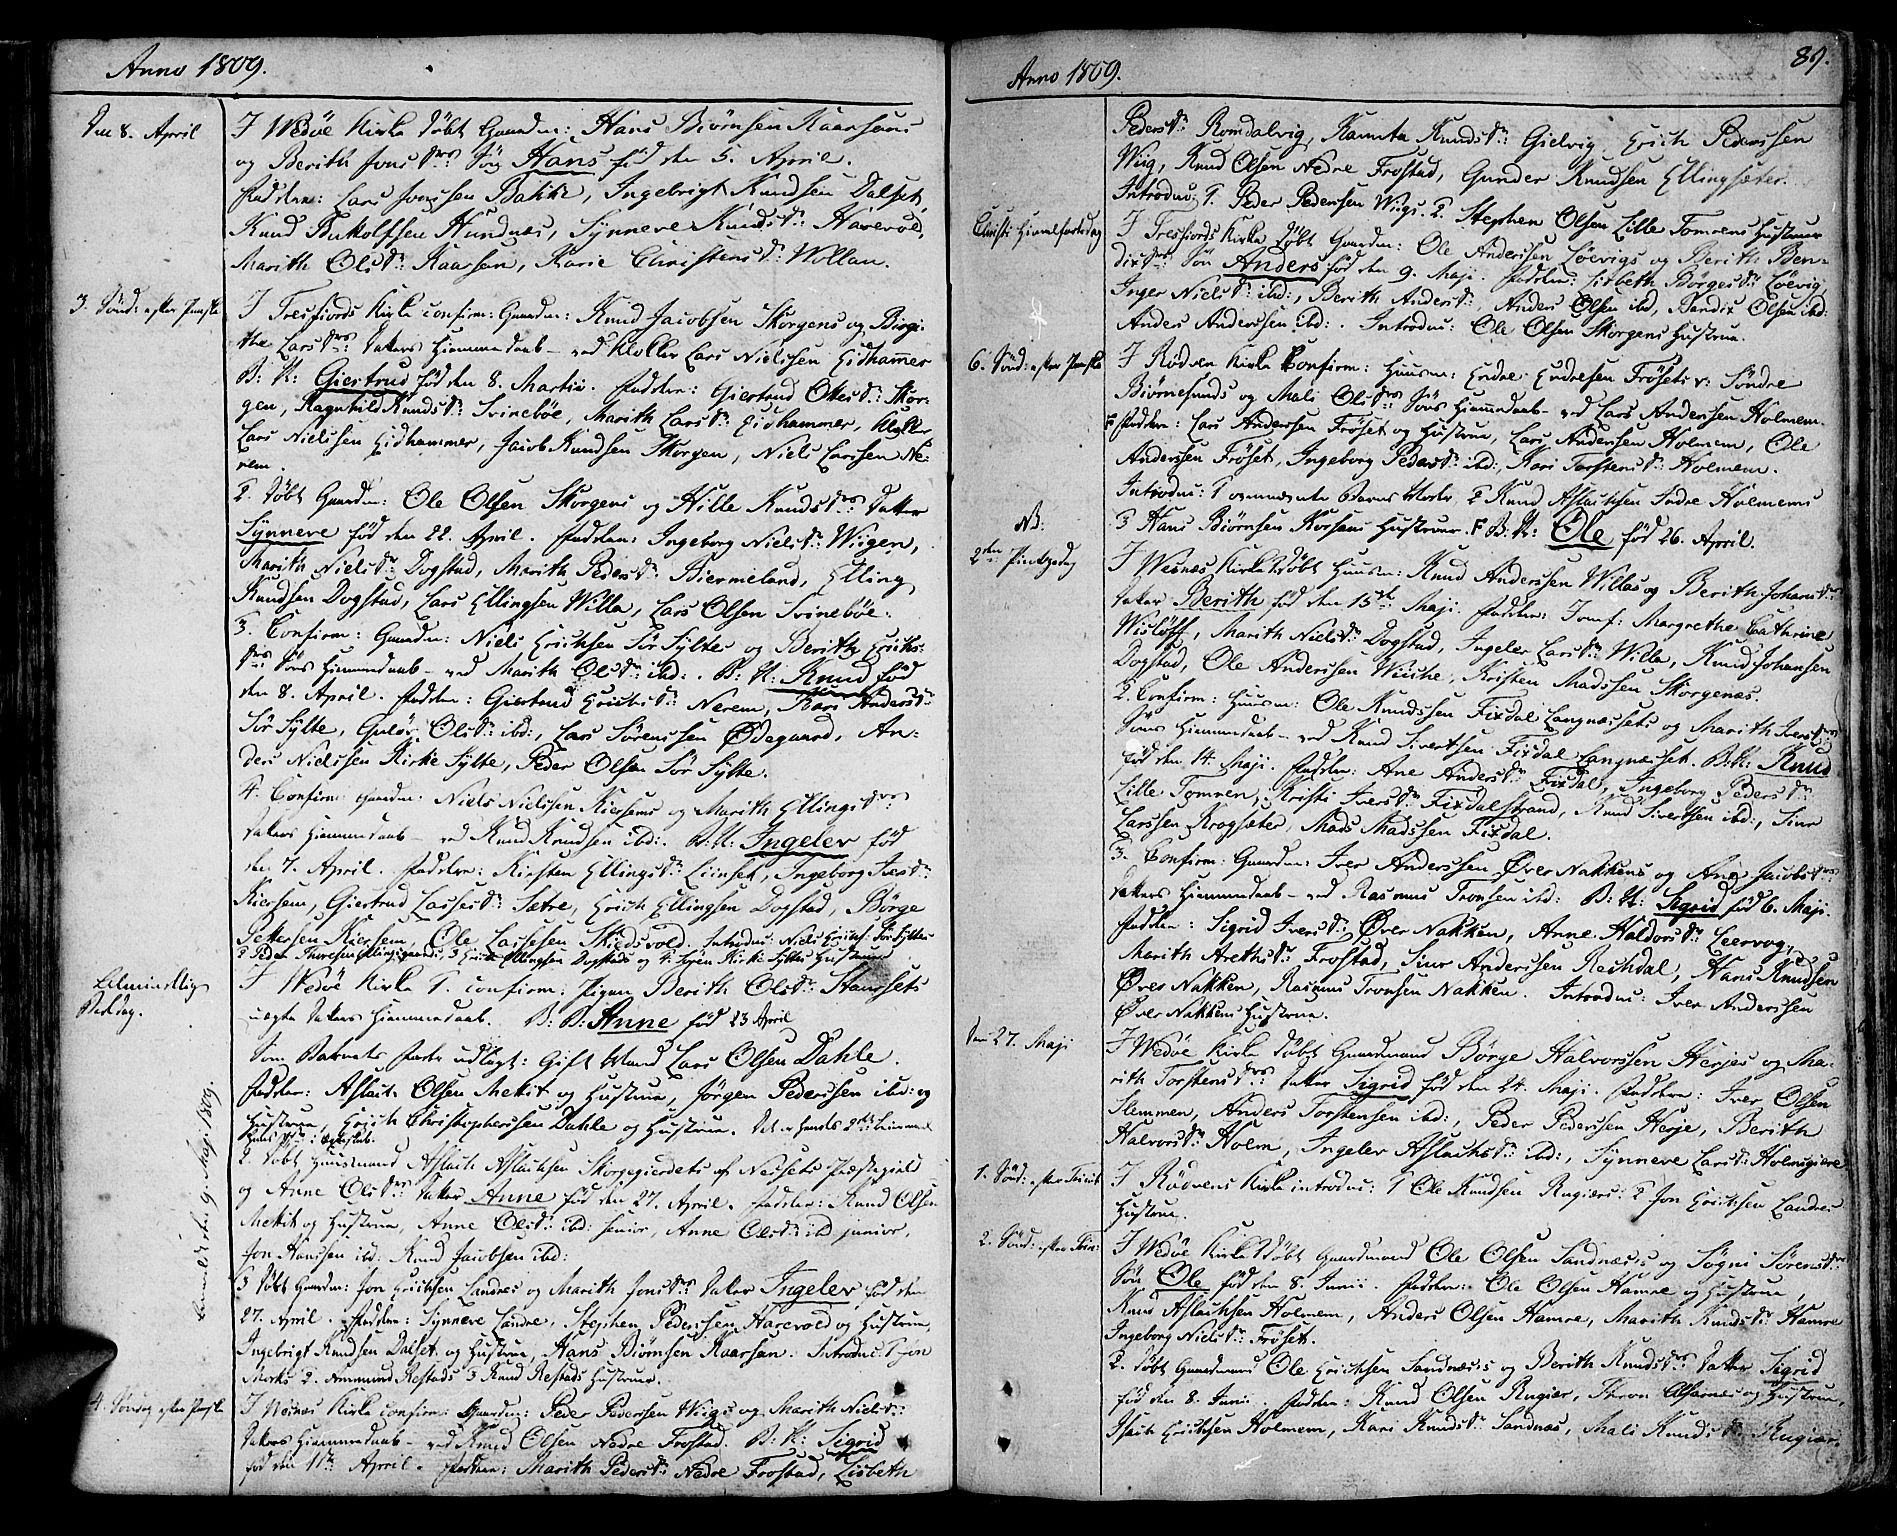 Anno 1809.
Den 8. April
I Wedöe Kirke döbt Gaardm: Hans Biörnsen Kaarsens
og Berith Jons Drs Sön Hans föd den 5. April.
Faddere: Lars Jonssen Bakke, Ingebrigt Knudsen Dalset,
Knud Knudsen Hundnes, Synneve Knudsdr: Harevold,
Marith Olsdr: Kaarsen, Karie Christensdr: Wollan.
3. Sönd: efter Paaske
I Tresfiords Kirke confirm: Gaardm: Knud Jacobsen Skorgens og Birgi-
the Larsdrs: Datters Hiemmedaab ved Klokker Lars Nielssen Eidhammer
B: N: Giertrud föd den 8. Martii. Faddere: Giertrud Olsdr: Skor-
gen, Ragnhild Knudsdr: Svineböe, Marith Larsdr: Eidhammer, Klokker
Lars Nielssen Eidhammer, Jacob Knudsen Skorgen, Niels Larssen Ne-
rem.
2. Döbt Gaardm: Ole Olsen Skorgens og Hille Knudsdrs: Datter
Synneve föd den 22. April. Faddere: Ingeborg Nielsdr: Wiigen,
Marith Nielsdr: Dogstad, Marith Pedersdr: Biermeland, Elling
Knudsen Dogstad, Lars Ellingsen Willa, Lars Olsen Svineböe.
3. Confirm: Gaardm: Niels Erichsen Sör Syltes og Berith Erichs-
drs Söns Hiemmedaab ved Marith Olsdr: ibd: B: N: Knud föd
den 8. April. Faddere: Giertrud Erichsdr: Nerem, Kari Andersdr:
Sör Sylte, Gulör Olsdr: ibd:, Lars Sörenssen Ödegaard, An-
ders Nielssen Kirke Sylte, Peder Olsen Sör Sylte.
4. Confirm: Gaardm: Niels Nielssen Kiersems og Marith Ellingsdrs
Datters Hiemmedaab ved Knud Knudsen ibd: B: N: Ingelev föd
den 7. April. Faddere: Kirsten Ellingsdr: Liinset, Ingeborg
Kiersem, Giertrud Lassesdr: Sætre, Erich Ellingsen Dogstad, Börge
Pettersen Kiersem, Ole Lassesen Skiedsvold. Introdu: Niels Erichs: Sör Syltes
2 Peder 3 Erich Ellingsen Dogstads og 4 Kirke Syltes Hustruer
Almindelig
Bededag.
I Wedöe Kirke 1. confirm: Pigen Berith Olsdr: Staursets
uægte Datters Hiemmedaab. B: N: Anne föd 23 April
Som Barnets Fader udlagt: Gift Mand Lars Olsen Dahle.
Faddere: Aslach Olsen Mekit og Hustrue, Jörgen Pederssen ibd: og
Hustrue, Erich Christopherssen Dahle og Hustrue.
Anmeldt den 9. Maji 1809.
2. Döbt Huusmand Aslach Aslachsen Skorgegierdets af Nessets Præstegield
og Anne Olsdrs: Datter Anne föd den 27. April. Faddere: Knud Olsen
Mekit og Hustrue, Anne Olsdr: ibd: senior, Anne Olsdr: ibd junior,
Jon Hanssen ibd: Knud Jacobsen ibd:
3 Döbt Gaardm: Jon Erichsen Landres og Marith Jonsdrs: Datter Ingelev föd den
27. April. Faddere: Synneve Landre, Stephen Pederssen Harevold og Hustrue,
Ingebrigt Knudsen Dalset og Hustrue, Hans Biörnsen Kaarsen. Introdu: 1 Jon
Morks 2. Ammund Restads 3 Knud Restads Hustruer.
4. Söndag efter Paaske
I Wesnæs Kirke confirm: Gaardm: Peder Pederssen Wiigs og Marith Nielsdr:
Datters Hiemmedaab ved Knud Olsen Nedre Frostad. B: N: Sigrid
föd den April. Faddere: Marith Pedersdr: Nedre Frostad, Lisbeth
Anno 1809.
89.
Pedersdr: Romdalsvig, Kamta Knudsdr: Gielvig, Erich Pederssen
Wiig, Knud Olsen Nedre Frostad, Gunder Knudsen Ellingsæter.
Introdu: 1. Peder Pedersen Wiigs. 2. Stephen Olsen Lille Tomrens Hustruer
Christi Himmelfartsdag
I Tresfiords Kirke döbt Gaardm: Ole Anderssen Löevigs og Berith Ben-
dixdrs: Sön Anders föd den 9. Maji. Faddere: Lisbeth Börgesdr: Löevig,
Inger Nielsdr: ibd:, Berith Andersdr:, Anders Olsen ibd, Bendix Olsen ibd:
Anders Anderssen ibd:. Introdu: Ole Olsen Skorgens Hustrue.
6. Sönd: efter Paaske
I Rödven Kirke Confirm: Huusm: Endre Endresen Frösets v: Söndre
Biörnesunds og Mali Olsdrs: Söns Hiemmedaab ved Lars Anderssen Holmem.
F Faddere: Lars Anderssen Fröset og Hustrue, Lars Anderssen Holmem, Ole
Anderssen Fröset, Ingeborg Pedersdr: ibd:, Kari Torstensdr: Holmem.
Introdu: 1 ommeldte Barns Moder 2 Knud Aslachsen Indre Holmems
NB:
3 Hans Biörnsen Korsens Hustruer. F B: N: Ole föd 26. April.
2den Pintzedag
I Wesnæs Kirke 1 döbt Huusm: Knud Anderssen Willas og Berith Johansdr:
Datter Berith föd den 15de Maji. Faddere: Jomf: Margrethe Cathrine
Wislöff, Marith Nielsdr: Dogstad, Ingelev Larsdr: Willa, Knud Johansen
Dogstad, Ole Anderssen Wiiche, Kristen Madssen Skorgenæs.
2. Confirm: Huusm: Ole Knudssen Fixdal Langnæssets og Marith Iversdrs
Söns Hiemmedaab ved Knud Sivertsen Fixdal Langnæsset. B: N: Knud
föd den 14. Maji. Faddere: Ane Andersdr: Fixdal, Ingeborg Pedersdr:
Lille Tomren, Kristi Iversdr: Fixdalstrand, Knud Sivertsen ibd:, Siur
Larssen Krogsæter, Mads Madssen Fixdal.
3. Confirm: Gaardm: Iver Anderssen Över Nakkens og Ane Jacobsdrs
Datters Hiemmedaab ved Rasmus Tronsen ibd: B: N: Sigrid föd 6. Maji.
Faddere: Sigrid Iversdr: Över Nakken, Anne Haldorsdr: Leervog,
Marith Arethsdr: Frostad, Siur Anderssen Rechdal, Hans Knudsen
Över Nakken, Rasmus Tronsen Nakken. Introdu: Iver Anderssen
Över Nakkens Hustrue.
Den 27. Maji
I Wedöe Kirke döbt Gaardmand Börge Halvorssen Herjes og Ma-
rith Torstensdrs: Datter Sigrid föd den 24. Maji. Faddere: Iver Olsen
Slemmen, Anders Torstensen ibd:, Peder Pederssen Herje, Berith
Halvorsdr: Holm, Ingelev Aslachsdr: ibd:, Synneve Larsdr: Holmsgiere
1. Sönd: efter Trinit:
I Rödvens Kirke introdu: 1 Ole Knudsen Rugiers: 2 Jon Erichsen Landres
Hustruer.
2. Sönd: efter Trin:
I Wedöe Kirke 1 döbt Gaardmand Ole Olsen Sandnæsis og Sögni Sörensdr:
Sön Ole föd den 8. Junii. Faddere: Ole Olsen Hamre og Hustrue,
Knud Aslachsen Holmem, Anders Olsen Hamre, Marith Knudsdr: Hamre
Ingeborg Nielsdr: Fröset.
2. döbt Gaardmand Ole Erichsen Sandnæsis og Berith Knudsdrs: Datter Sigrid
föd den 8. Junii. Faddere: Knud Olsen Rugier, og Hustrue,
Isach Erichsen Holmem, Kari Knudsdr: Sandnæs, Mali Knudsdr: Rugier.